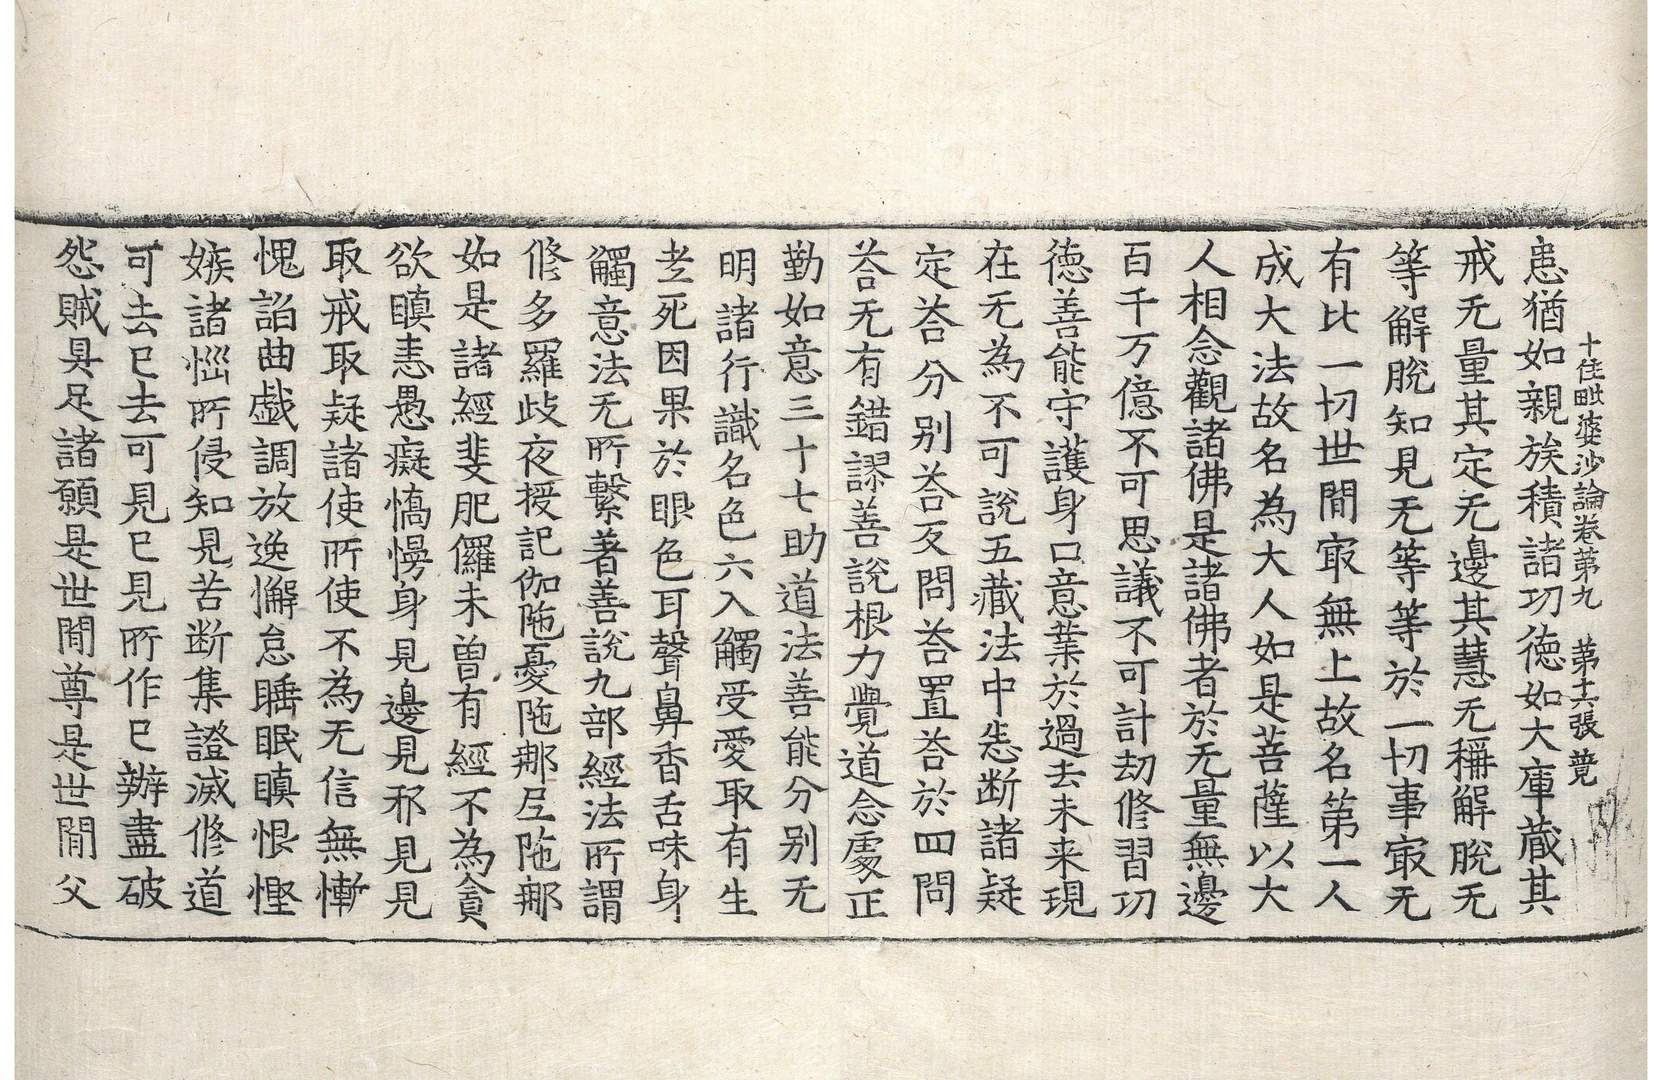 十住毗婆沙論卷第九　第十六張　竟
恚猶如親族積諸功德如大庫藏其
戒无量其定无邊其慧无稱解脫无
等解脫知見无等等於一切事㝡无
有比一切世間㝡無上故名第一人
成大法故名為大人如是菩薩以大
人相念觀諸佛是諸佛者於无量無邊
百千万億不可思議不可計劫修習功
德善能守護身口意業於過去未来現
在无為不可說五藏法中悉断諸疑
定荅分别荅反問荅置荅於四問
荅无有錯謬善說根力覺道念處正
勤如意三十七助道法善能分别无
明諸行識名色六入觸受愛取有生
老死因果於眼色耳聲鼻香舌味身
觸意法无所繫著善說九部經法所謂
修多羅歧夜授記伽陁憂陁那尼陁那
如是諸經斐肥儸未曾有經不為貪
欲瞋恚愚癡憍慢身見邊見邪見見
取戒取疑諸使所使不為无信無慚
愧諂曲戲調放逸懈怠睡眠瞋恨慳
嫉諸惱所侵知見苦断集證滅修道
可去已去可見已見所作已辦盡破
怨賊具足諸願是世間尊是世間父